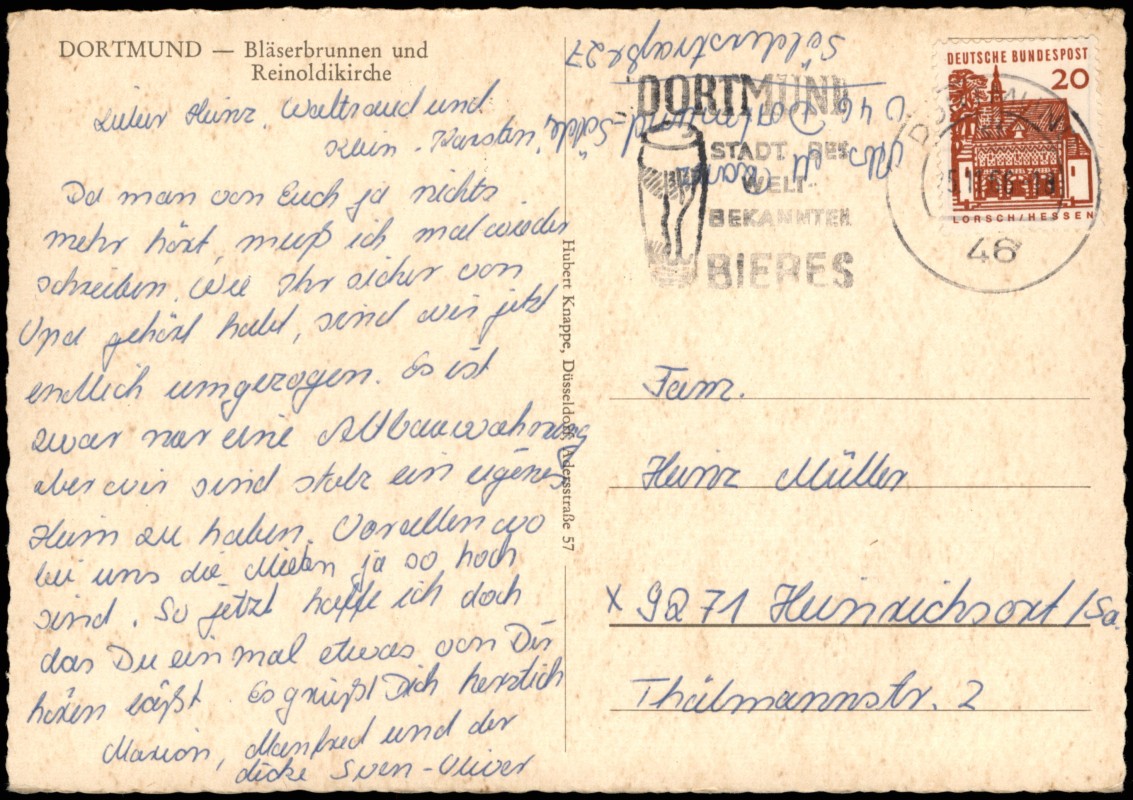 DORTMUND — Bläserbrunnen und
Reinoldikirche
Lieber Heinz, Waltraud und
klein-Karsten,
Da man von Euch ja nichts
mehr hört, muß ich mal wieder
schreiben. Wie Ihr sicher von
Opa gehört habt, sind wir jetzt
endlich umgezogen. Es ist
zwar nur eine Altbauwohnung
aber wir sind stolz ein eigenes
Heim zu haben. Vorallen wo
bei uns die Mieten ja so hoch
sind. So jetzt hoffe ich doch
das Du einmal etwas von Dir
hören läßt. Es grüßt Dich herzlich
Marion, Manfred und der
dicke Sven-Oliver
Hubert Knappe, Düsseldorf, Adersstraße 57
Abs. M.
46 Dortmund-Sölde
Sölderstraße 27
DORTMUND
STADT DES
WELT-
BEKANNTEN
BIERES
DEUTSCHE BUNDESPOST
20
LORSCH/HESSEN
46
Fam.
Heinz Müller
X 9271 Heinrichsort/Sa.
Thälmannstr. 2